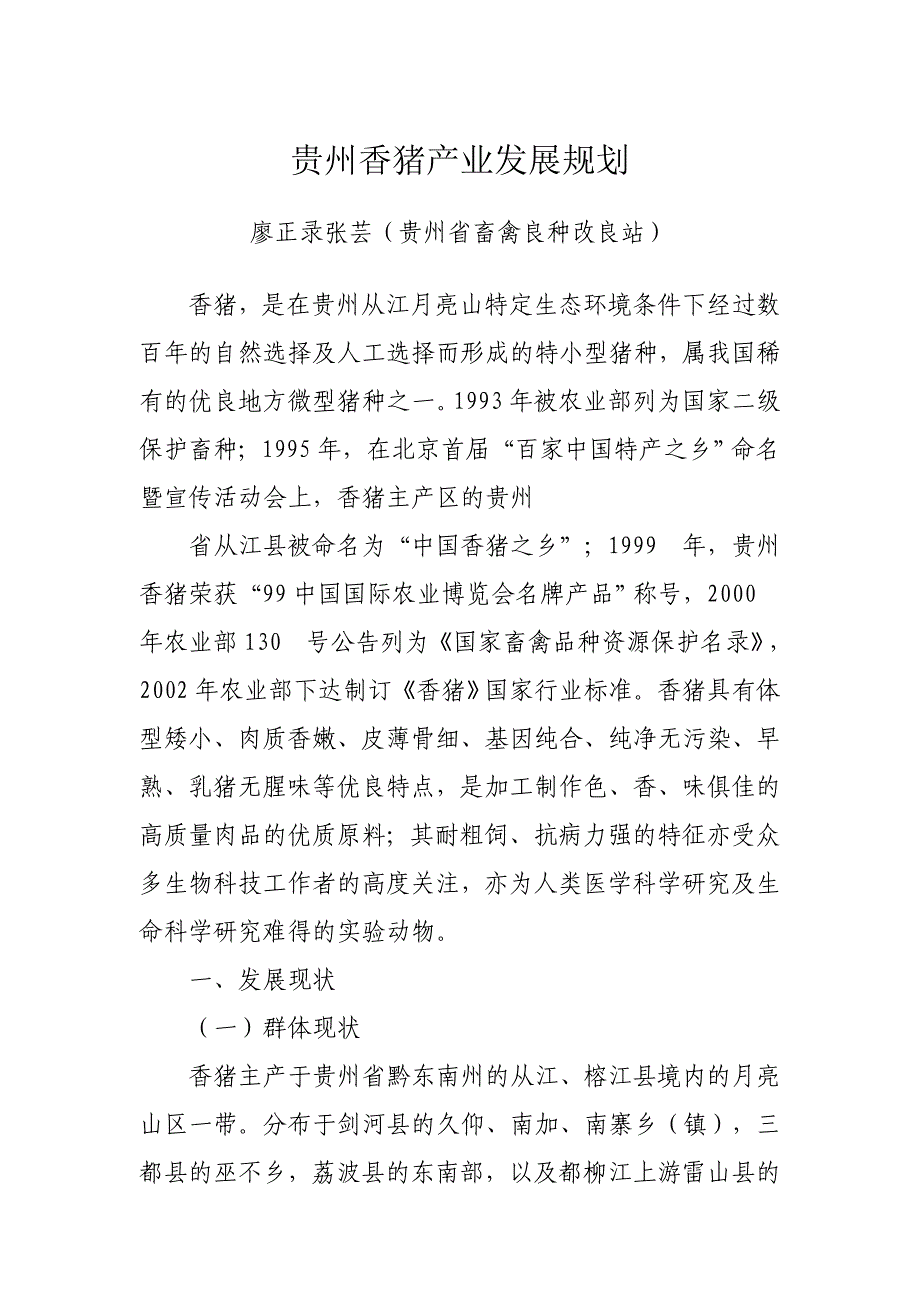 贵州香猪产业发展规划
廖正录张芸（贵州省畜禽良种改良站）
香猪，是在贵州从江月亮山特定生态环境条件下经过数
百年的自然选择及人工选择而形成的特小型猪种，属我国稀
有的优良地方微型猪种之一。1993年被农业部列为国家二级
保护畜种；1995年，在北京首届“百家中国特产之乡”命名
暨宣传活动会上，香猪主产区的贵州
省从江县被命名为“中国香猪之乡”；1999　年，贵州
香猪荣获“99中国国际农业博览会名牌产品”称号，2000
年农业部130　号公告列为《国家畜禽品种资源保护名录》，
2002年农业部下达制订《香猪》国家行业标准。香猪具有体
型矮小、肉质香嫩、皮薄骨细、基因纯合、纯净无污染、早
熟、乳猪无腥味等优良特点，是加工制作色、香、味俱佳的
高质量肉品的优质原料；其耐粗饲、抗病力强的特征亦受众
多生物科技工作者的高度关注，亦为人类医学科学研究及生
命科学研究难得的实验动物。
一、发展现状
（一）群体现状
香猪主产于贵州省黔东南州的从江、榕江县境内的月亮
山区一带。分布于剑河县的久仰、南加、南寨乡（镇），三
都县的巫不乡，荔波县的东南部，以及都柳江上游雷山县的